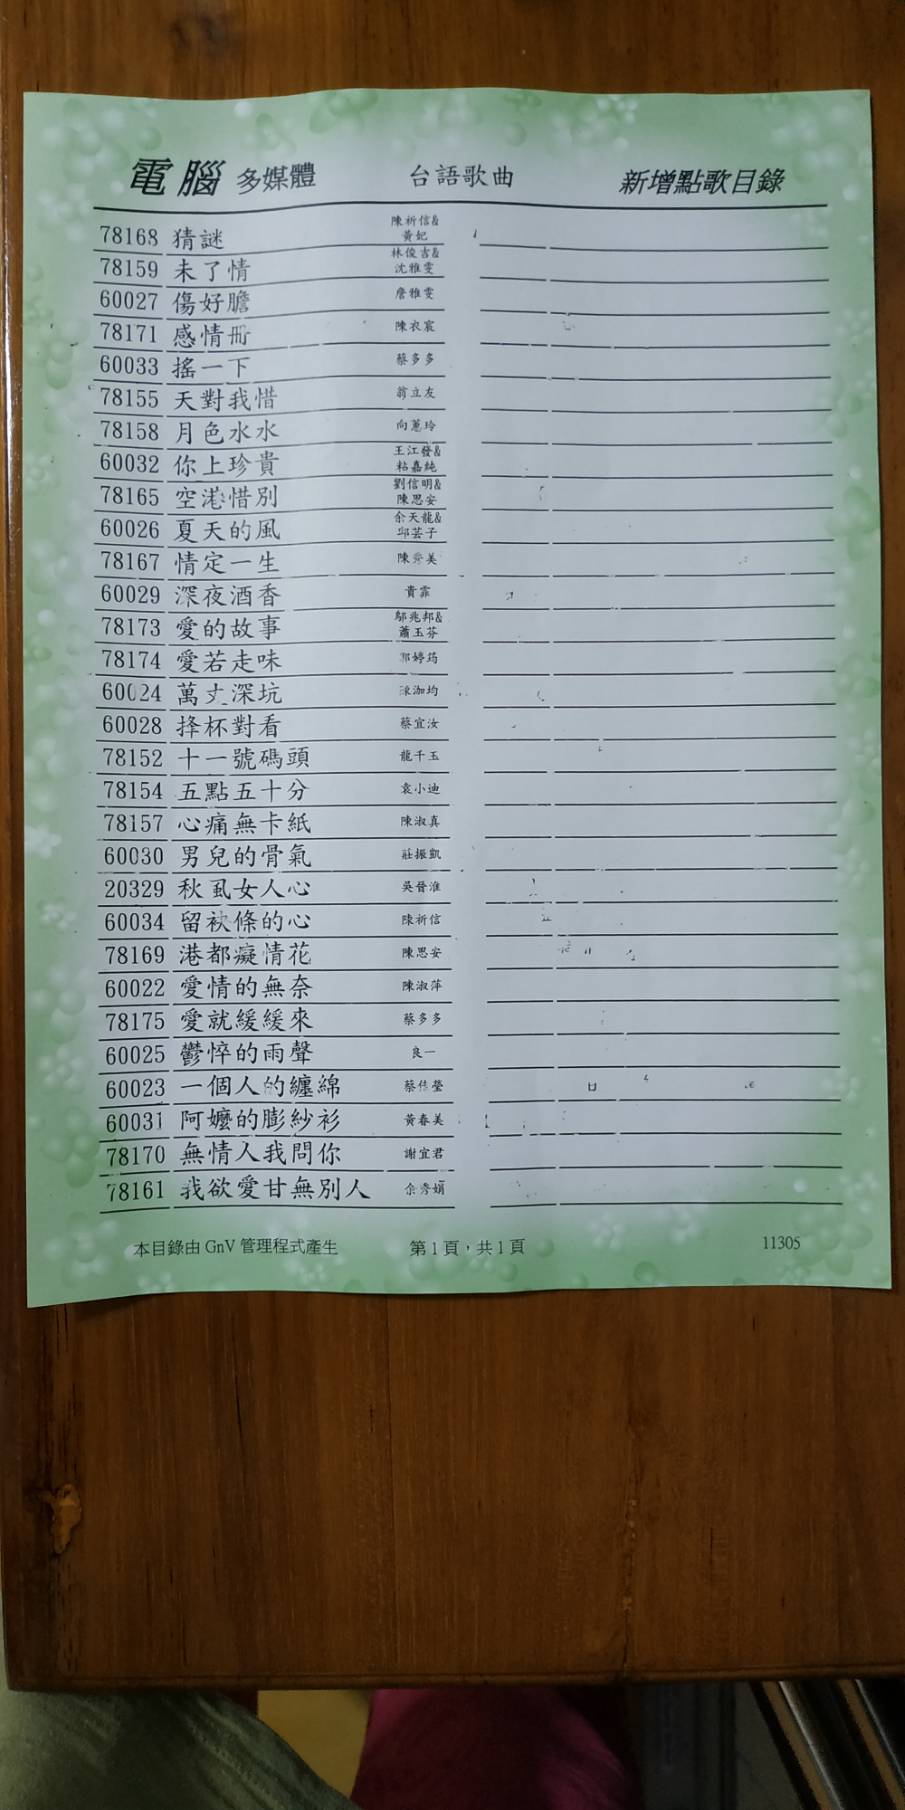 電腦 多媒體 台語歌曲 新增點歌目錄
78168 猜謎 陳祈信& 黃妃
78159 未了情 林俊吉& 沈雅雯
60027 傷好膽 詹雅雯
78171 感情冊 陳衣宸
60033 搖一下 蔡多多
78155 天對我惜 翁立友
78158 月色水水 向蕙玲
60032 你上珍貴 王江發& 粘嘉純
78165 空港惜別 劉信明& 陳思安
60026 夏天的風 余天龍& 邱芸子
78167 情定一生 陳秀美
60029 深夜酒香 貴霏
78173 愛的故事 鄔兆邦& 蕭玉芬
78174 愛若走味 郭婷筠
60024 萬丈深坑 陳泇均
60028 捀杯對看 蔡宜汝
78152 十一號碼頭 龍千玉
78154 五點五十分 袁小迪
78157 心痛無卡紙 陳淑真
60030 男兒的骨氣 莊振凱
20329 秋風女人心 吳晉淮
60034 留袂條的心 陳祈信
78169 港都癡情花 陳思安
60022 愛情的無奈 陳淑萍
78175 愛就緩緩來 蔡多多
60025 鬱悴的雨聲 良一
60023 一個人的纏綿 蔡佳瑩
60031 阿嬤的膨紗衫 黃春美
78170 無情人我問你 謝宜君
78161 我欲愛甘無別人 余秀娟
本目錄由 GnV 管理程式產生 第 1 頁，共 1 頁 11305